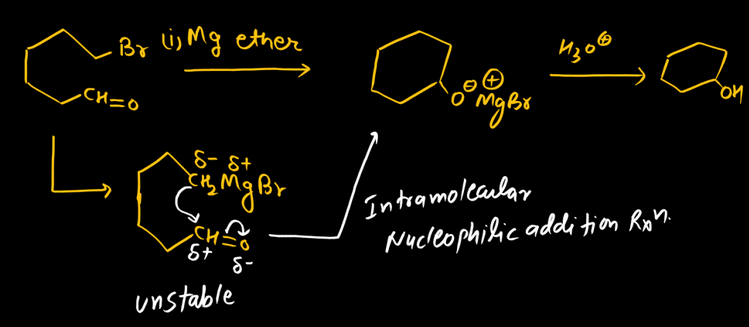 Br (i) Mg ether
H₃O⊕
CH=O
O⊖ ⊕MgBr
OH
δ- δ+
CH₂MgBr
CH=O
δ+
δ-
unstable
Intramolecular
Nucleophilic addition Rxⁿ.